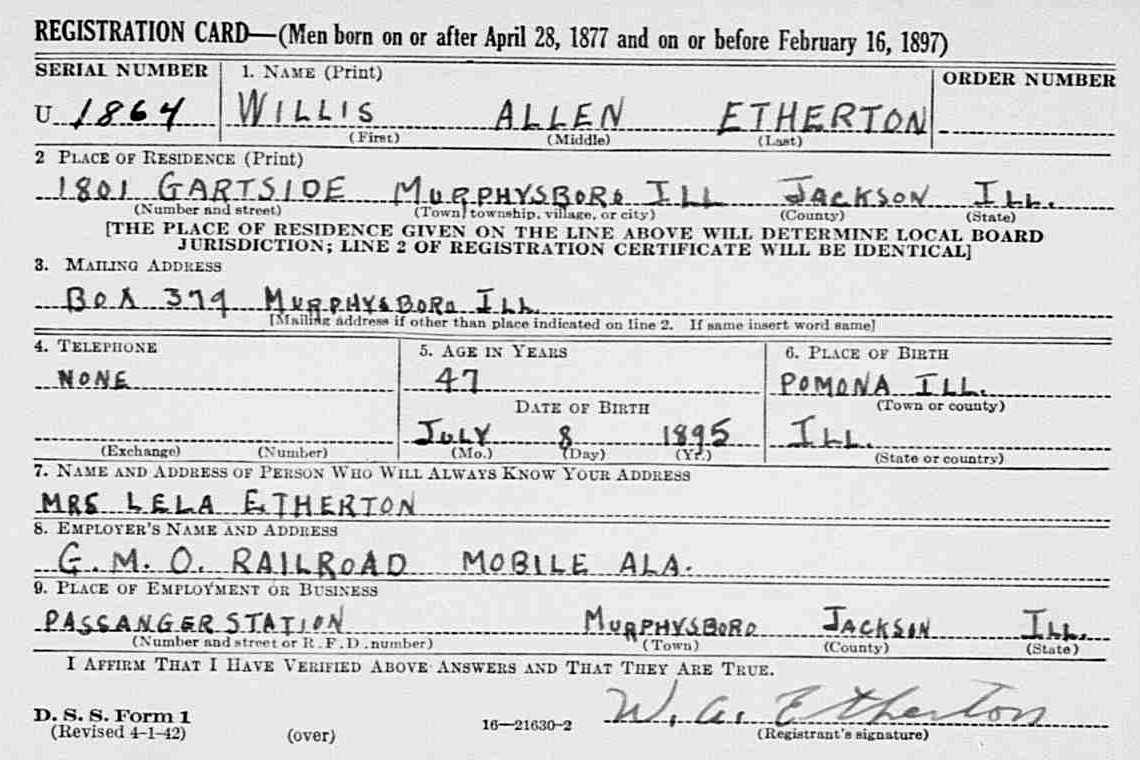 REGISTRATION CARD—(Men born on or after April 28, 1877 and on or before February 16, 1897)
SERIAL NUMBER 1. NAME (Print) ORDER NUMBER
U 1864 WILLIS ALLEN ETHERTON
(First) (Middle) (Last)
2 PLACE OF RESIDENCE (Print)
1801 GARTSIDE MURPHYSBORO ILL JACKSON ILL.
(Number and street) (Town, township, village, or city) (County) (State)
[THE PLACE OF RESIDENCE GIVEN ON THE LINE ABOVE WILL DETERMINE LOCAL BOARD
JURISDICTION; LINE 2 OF REGISTRATION CERTIFICATE WILL BE IDENTICAL]
3. MAILING ADDRESS
BOX 374 MURPHYSBORO ILL.
[Mailing address if other than place indicated on line 2. If same insert word same]
4. TELEPHONE 5. AGE IN YEARS 6. PLACE OF BIRTH
NONE 47 POMONA ILL.
DATE OF BIRTH (Town or county)
JULY 8 1895 ILL.
(Exchange) (Number) (Mo.) (Day) (Yr.) (State or country)
7. NAME AND ADDRESS OF PERSON WHO WILL ALWAYS KNOW YOUR ADDRESS
MRS LELA ETHERTON
8. EMPLOYER'S NAME AND ADDRESS
G.M.O. RAILROAD MOBILE ALA.
9. PLACE OF EMPLOYMENT OR BUSINESS
PASSANGER STATION MURPHYSBORO JACKSON ILL.
(Number and street or R. F. D. number) (Town) (County) (State)
I AFFIRM THAT I HAVE VERIFIED ABOVE ANSWERS AND THAT THEY ARE TRUE.
W. A. Etherton
D. S. S. Form 1
(Revised 4-1-42) (over) 16—21630-2 (Registrant's signature)